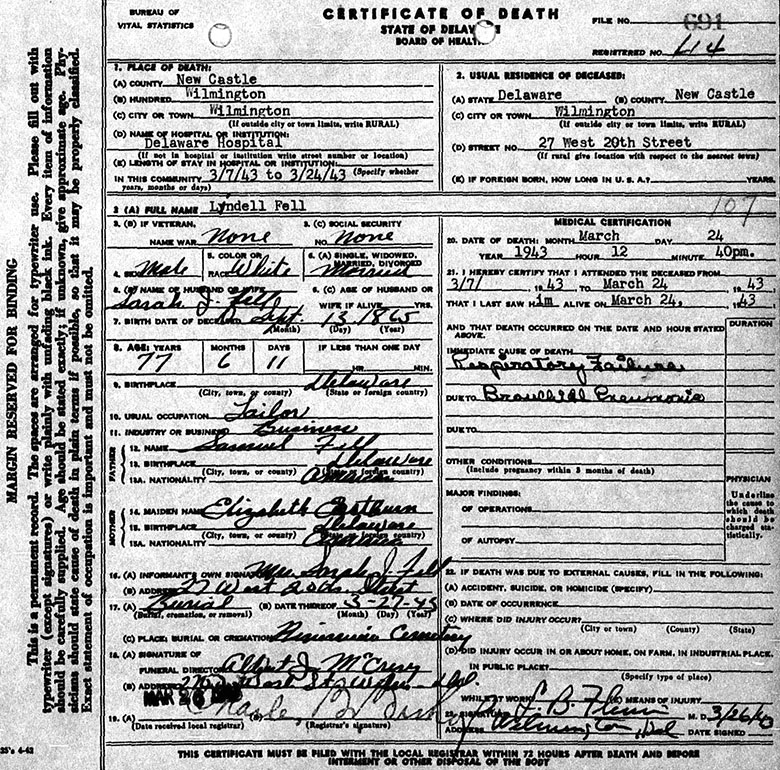 BUREAU OF
VITAL STATISTICS
CERTIFICATE OF DEATH
STATE OF DELAWARE
BOARD OF HEALTH
FILE NO. 691
REGISTERED NO. 414
MARGIN RESERVED FOR BINDING
This is a permanent record. The spaces are arranged for typewriter use. Please fill out with
typewriter (except signatures) or write plainly with unfading black ink. Every item of information
should be carefully supplied. Age should be stated exactly; if unknown, give approximate age. Phy-
sicians should state cause of death in plain terms if possible, so that it may be properly classified.
Exact statement of occupation is important and must not be omitted.
1. PLACE OF DEATH:
(A) COUNTY New Castle
(B) HUNDRED Wilmington
(C) CITY OR TOWN Wilmington
(If outside city or town limits, write RURAL)
(D) NAME OF HOSPITAL OR INSTITUTION:
Delaware Hospital
(If not in hospital or institution write street number or location)
(E) LENGTH OF STAY IN HOSPITAL OR INSTITUTION:
IN THIS COMMUNITY 3/7/43 to 3/24/43 (Specify whether
years, months or days)
2. USUAL RESIDENCE OF DECEASED:
(A) STATE Delaware (B) COUNTY New Castle
(C) CITY OR TOWN Wilmington
(If outside city or town limits, write RURAL)
(D) STREET NO. 27 West 20th Street
(If rural give location with respect to the nearest town)
(E) IF FOREIGN BORN, HOW LONG IN U. S. A.? YEARS.
3 (A) FULL NAME Lyndell Fell
107
3. (B) IF VETERAN, NAME WAR None
3. (C) SOCIAL SECURITY NO. None
4. SEX Male
5. COLOR OR RACE White
6. (A) SINGLE, WIDOWED, MARRIED, DIVORCED Married
6. (B) NAME OF HUSBAND OR WIFE
Sarah J. Fell
6. (C) AGE OF HUSBAND OR WIFE IF ALIVE YRS.
7. BIRTH DATE OF DECEASED Sept. 13 1865
(Month) (Day) (Year)
8. AGE: YEARS MONTHS DAYS IF LESS THAN ONE DAY
77 6 11 HR. MIN.
9. BIRTHPLACE Delaware
(City, town, or county) (State or foreign country)
10. USUAL OCCUPATION Tailor
11. INDUSTRY OR BUSINESS Business
FATHER
12. NAME Samuel Fell
13. BIRTHPLACE Delaware
(City, town, or county) (State or foreign country)
13A. NATIONALITY American
MOTHER
14. MAIDEN NAME Elizabeth Eastburn
15. BIRTHPLACE Delaware
(City, town, or county) (State or foreign country)
15A. NATIONALITY American
16. (A) INFORMANT'S OWN SIGNATURE Mrs Sarah J. Fell
(B) ADDRESS 27 West 20th Street
17. (A) Burial (B) DATE THEREOF 3-27-43
(Burial, cremation, or removal) (Month) (Day) (Year)
(C) PLACE: BURIAL OR CREMATION Cemetery
18. (A) SIGNATURE OF
FUNERAL DIRECTOR Albert J. McCrery
(B) ADDRESS West St Wilm. Del.
MAR 26
19. (A) (B)
(Date received local registrar) (Registrar's signature)
MEDICAL CERTIFICATION
20. DATE OF DEATH: MONTH March DAY 24
YEAR 1943 HOUR 12 MINUTE 40pm.
21. I HEREBY CERTIFY THAT I ATTENDED THE DECEASED FROM
3/7/ 1943 TO March 24 1943
THAT I LAST SAW him ALIVE ON March 24, 1943
AND THAT DEATH OCCURRED ON THE DATE AND HOUR STATED
ABOVE.
DURATION
IMMEDIATE CAUSE OF DEATH
Respiratory Failure
DUE TO Bronchial Pneumonia
DUE TO:
OTHER CONDITIONS
(Include pregnancy within 3 months of death)
MAJOR FINDINGS:
OF OPERATIONS
OF AUTOPSY
PHYSICIAN
Underline
the cause to
which death
should be
charged sta-
tistically.
22. IF DEATH WAS DUE TO EXTERNAL CAUSES, FILL IN THE FOLLOWING:
(A) ACCIDENT, SUICIDE, OR HOMICIDE (SPECIFY)
(B) DATE OF OCCURRENCE
(C) WHERE DID INJURY OCCUR?
(City or town) (County) (State)
(D) DID INJURY OCCUR IN OR ABOUT HOME, ON FARM, IN INDUSTRIAL PLACE,
IN PUBLIC PLACE?
(Specify type of place)
WHILE AT WORK? (E) MEANS OF INJURY
23. SIGNATURE M. D.
ADDRESS Wilmington, Del DATE SIGNED 3/26/43
THIS CERTIFICATE MUST BE FILED WITH THE LOCAL REGISTRAR WITHIN 72 HOURS AFTER DEATH AND BEFORE
INTERMENT OR OTHER DISPOSAL OF THE BODY